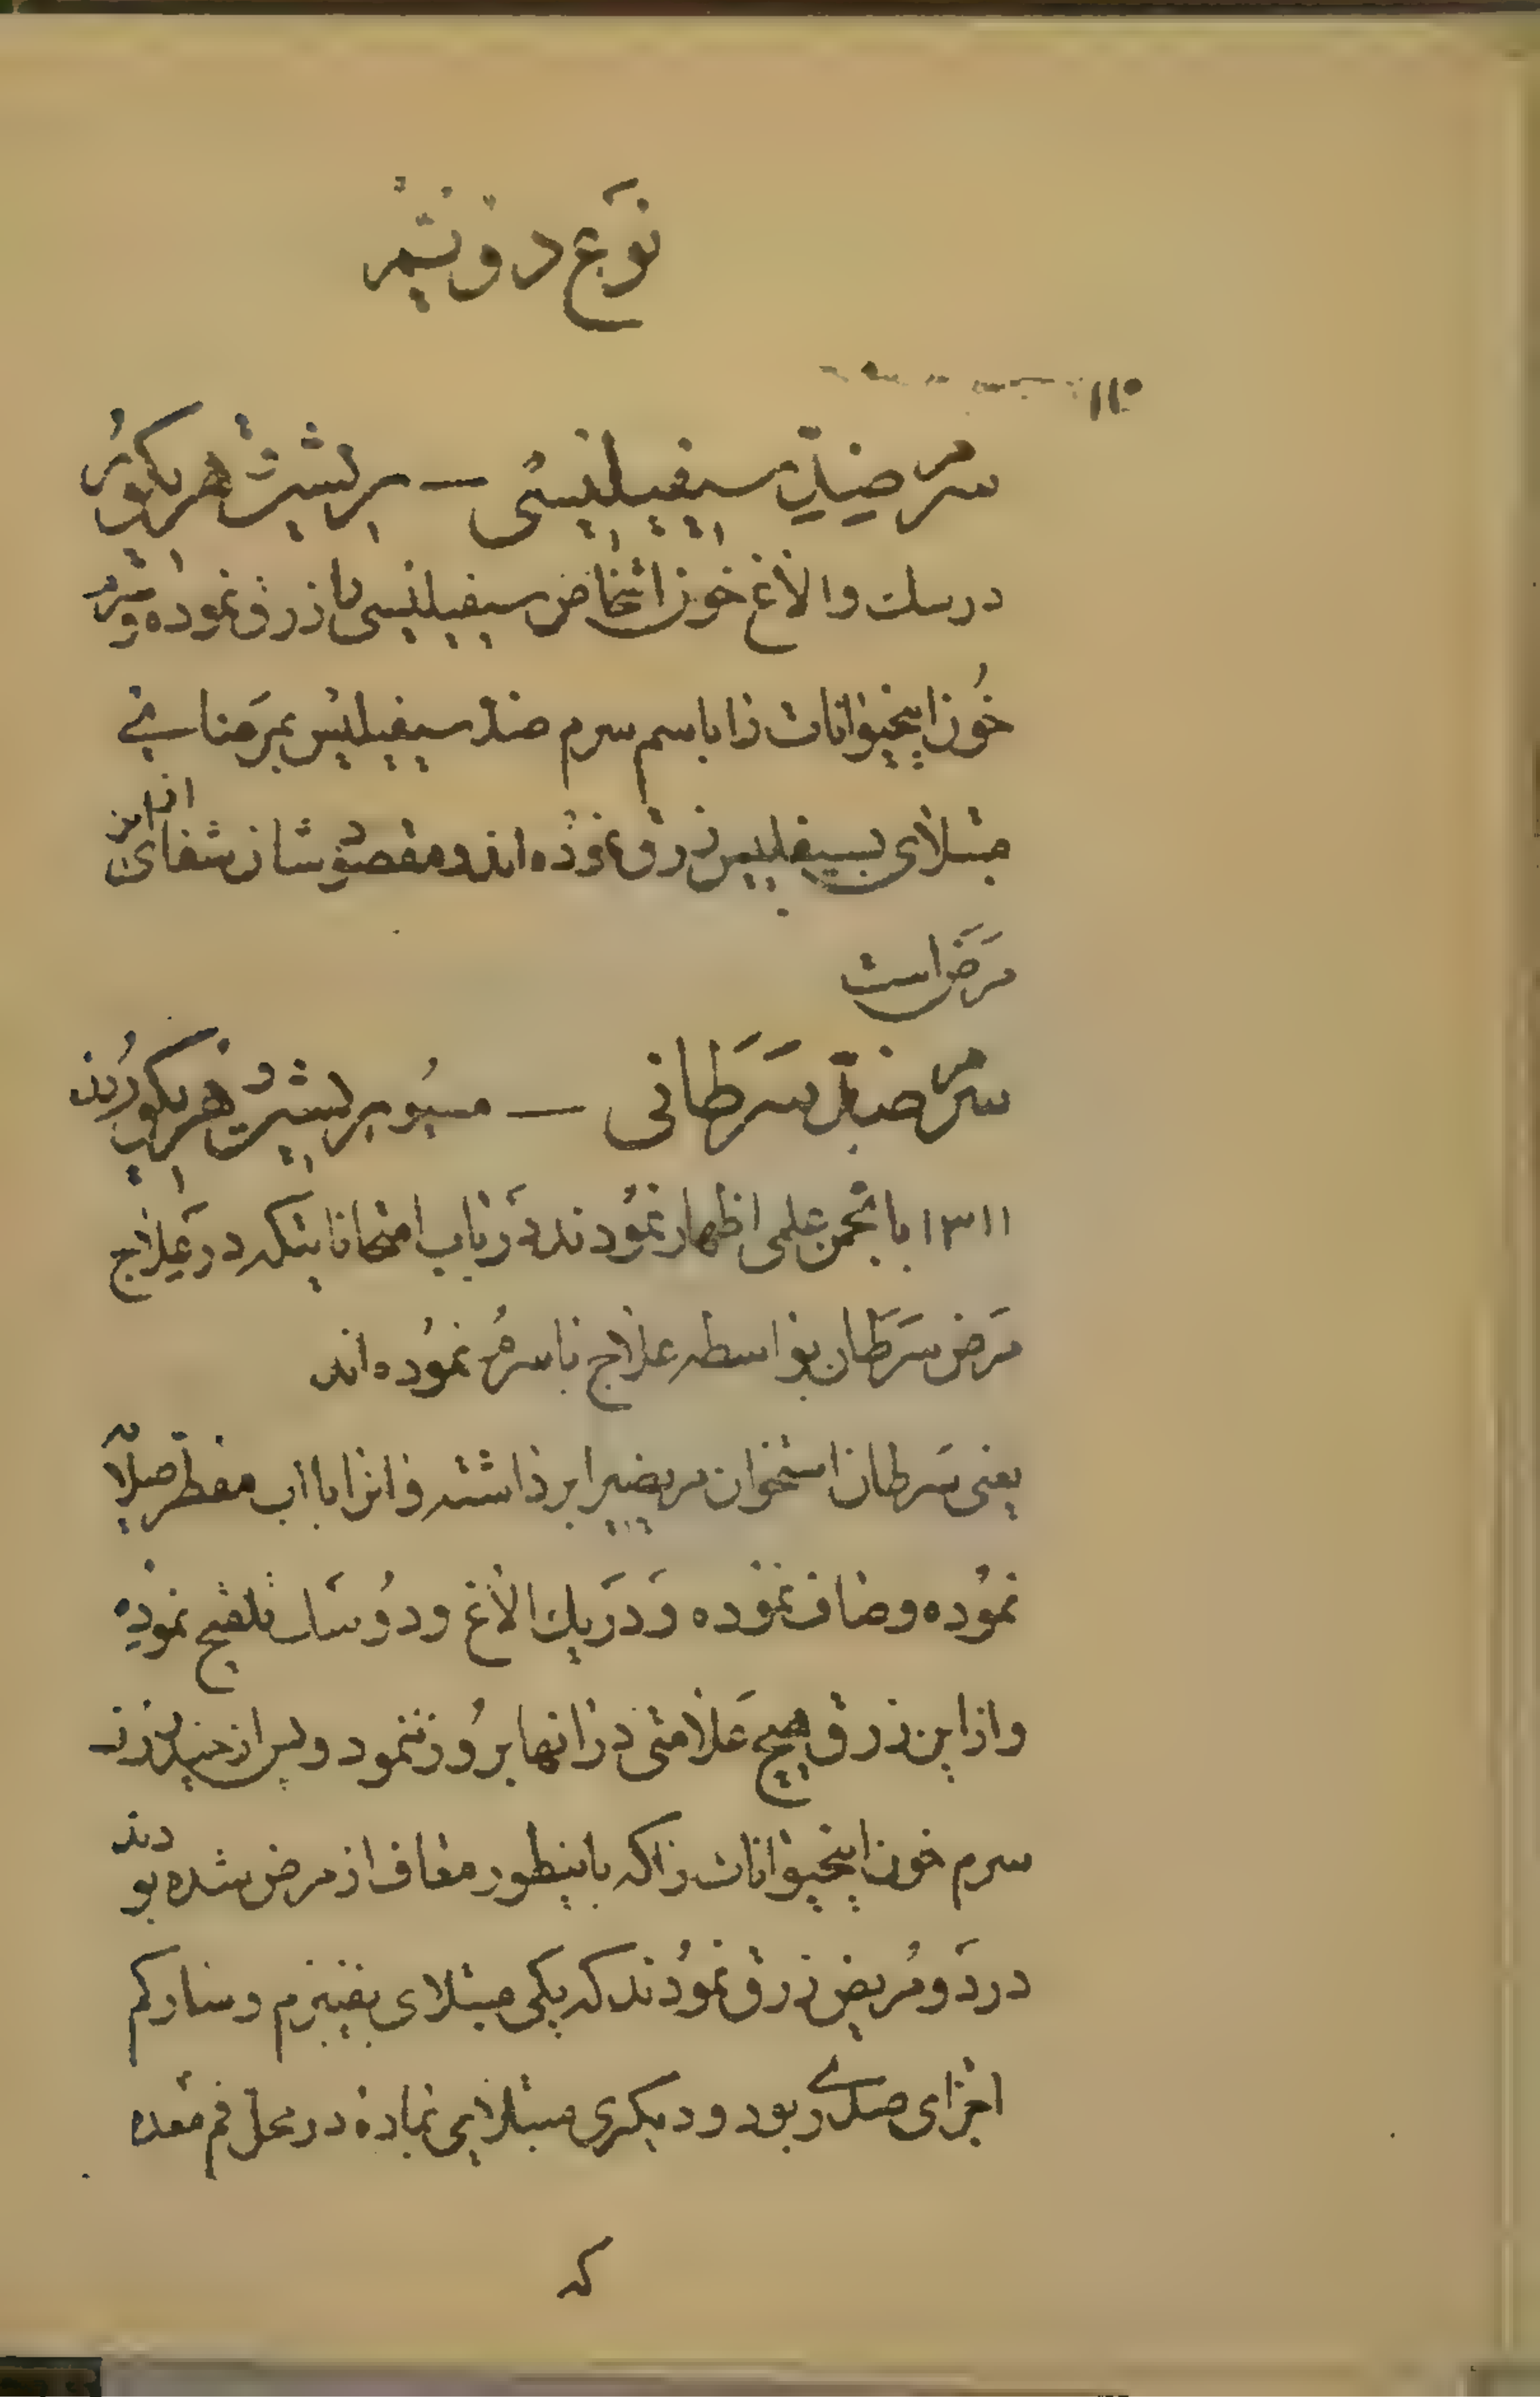 نوع دویّم
سرم ضدّ سیفیلیسی — بریشه هریکور
در سك و الاغ خون اشخاص سیفیلیسی را زرق نموده و سرم
خون اینحیوانات را باسم سرم ضد سیفیلیس بمرضاء
مبتلای بسیفلیس زرق نموده اند و مقصودشان شفای این
مرض است
سرم ضدّ سرطانی — مسیو بریشه هریکور در
۱۳۱۱ بانجمن علمی اظهار نمودند در باب امتحاناتیکه در علاج
مرض سرطان بواسطه علاج با سرم نموده اند
یعنی سرطان استخوان مریضیرا برداشته و انرا با اب مقطر صلایه
نموده و صاف نموده و در یك الاغ و دو سك تلقیح نموده
و از این زرق هیچ علامتی در انها بروز ننمود و پس از چند روز
سرم خون اینحیوانات را که باینطور معاف از مرض شده بودند
در دو مریض زرق نمودند که یکی مبتلای بفیبرم و سارکم
اجزای صدر بود و دیکری مبتلا بمادهٔ در محل فم معده
که